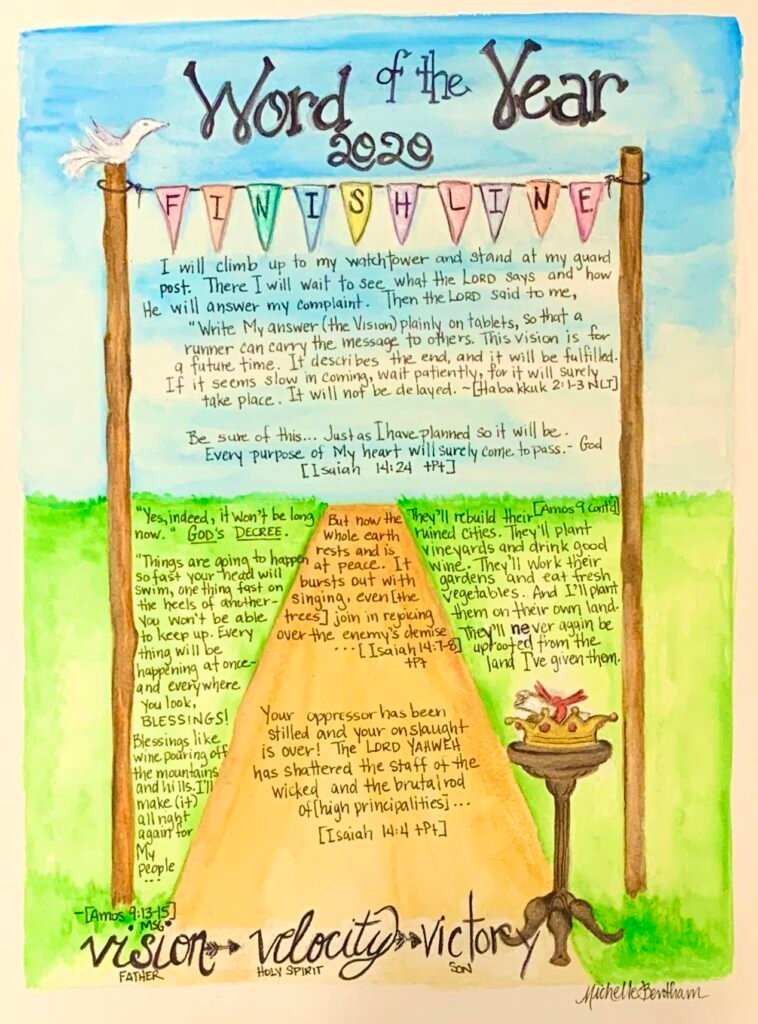 Word of the Year
2020
FINISH LINE
I will climb up to my watchtower and stand at my guard
post. There I will wait to see what the LORD says and how
He will answer my complaint. Then the LORD said to me,
"Write My answer (the Vision) plainly on tablets, so that a
runner can carry the message to others. This vision is for
a future time. It describes the end, and it will be fulfilled.
If it seems slow in coming, wait patiently, for it will surely
take place. It will not be delayed. ~[Habakkuk 2:1-3 NLT]
Be sure of this... Just as I have planned so it will be.
Every purpose of My heart will surely come to pass. - God
[Isaiah 14:24 tPt]
"Yes, indeed, it won't be long
now." GOD'S DECREE.
"Things are going to happen
so fast your head will
swim, one thing fast on
the heels of another-
you won't be able
to keep up. Every
thing will be
happening at once-
and everywhere
you look,
BLESSINGS!
Blessings like
wine pouring off
the mountains
and hills. I'll
make (it)
all right
again for
My
people
...
~[Amos 9:13-15]
MSG
But now the
whole earth
rests and is
at peace. It
bursts out with
singing, even [the
trees] join in rejoicing
over the enemy's demise
...[Isaiah 14:7-8]
tPt
They'll rebuild their [Amos 9 cont'd]
ruined cities. They'll plant
vineyards and drink good
wine. They'll work their
gardens and eat fresh
vegetables. And I'll plant
them on their own land.
They'll never again be
uprooted from the
land I've given them.
Your oppressor has been
stilled and your onslaught
is over! The LORD YAHWEH
has shattered the staff of the
wicked and the brutal rod
of [high principalities]...
[Isaiah 14:4 tPt]
vision velocity victory
FATHER HOLY SPIRIT SON
Michelle Bentham